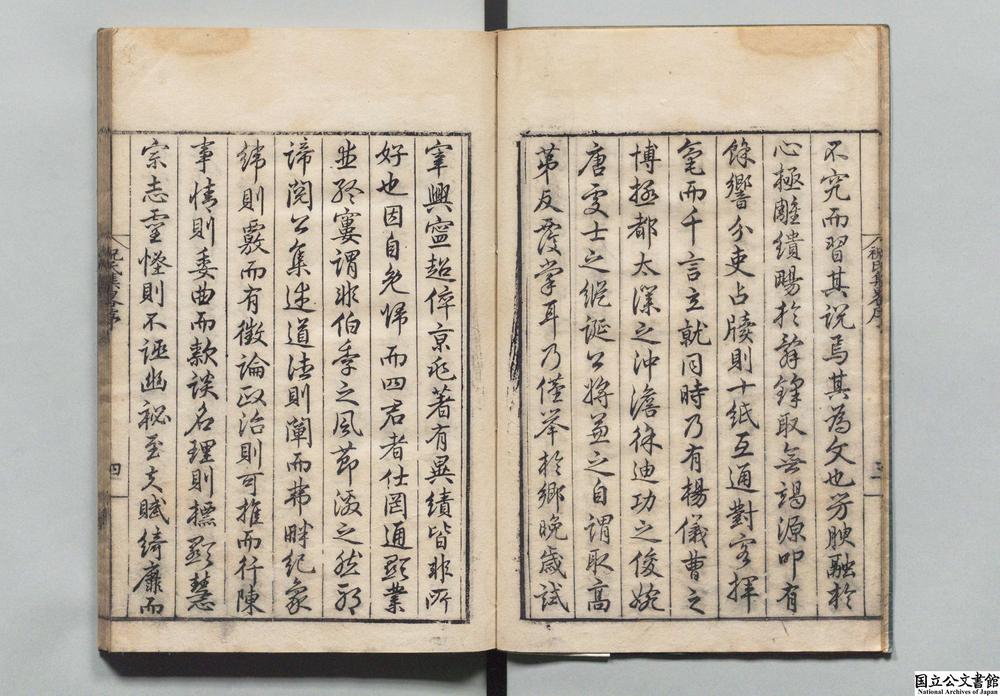 不究而習其說焉其為文也芳腴融於
心極雕繢暢於辭鋒取無竭源叩有
餘響分吏占牘則十紙互通對客揮
毫而千言立就同時乃有楊儀曹之
博極都太僕之沖澹徐迪功之俊婉
唐文士之縱誕公將兼之自謂取高
第反覆掌耳乃僅舉於鄉晚歲試
宰興寧超倅京兆著有異績皆非所
好也因自免歸而四君者仕罔通顯業
並終窶謂非伯季之風節激之然耶
諦閱公集述道法則闡而弗畔紀象
緯則覈而有徵論政治則可推而行陳
事情則委曲而款談名理則標顯慧
宗志靈怪則不誣幽祕至夫賦綺靡而
祝氏集略序
三
祝氏集略序
四
国立公文書館
National Archives of Japan